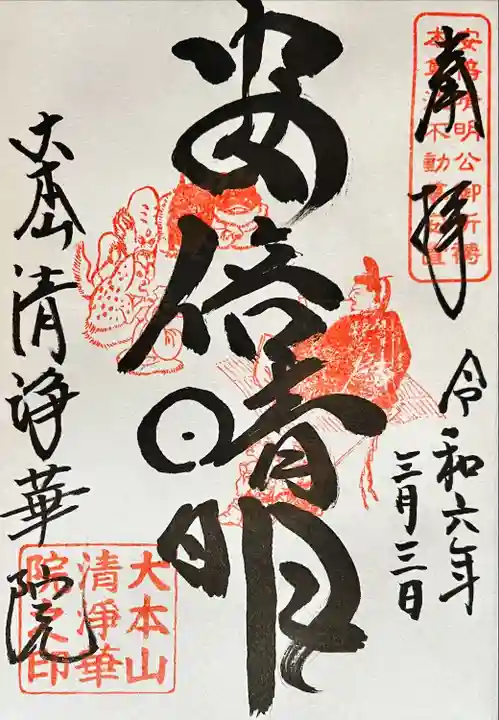 奉拝
安倍晴明公御祈祷
本尊泣不動尊安置
令和六年
三月三日
安倍晴明
大本山 清浄華院
大本山
清浄華
院之印